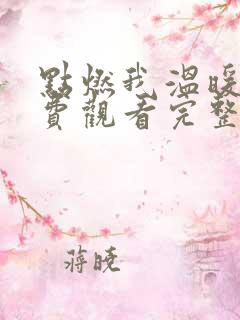 點燃我溫暖
費觀看完整
蔣曉